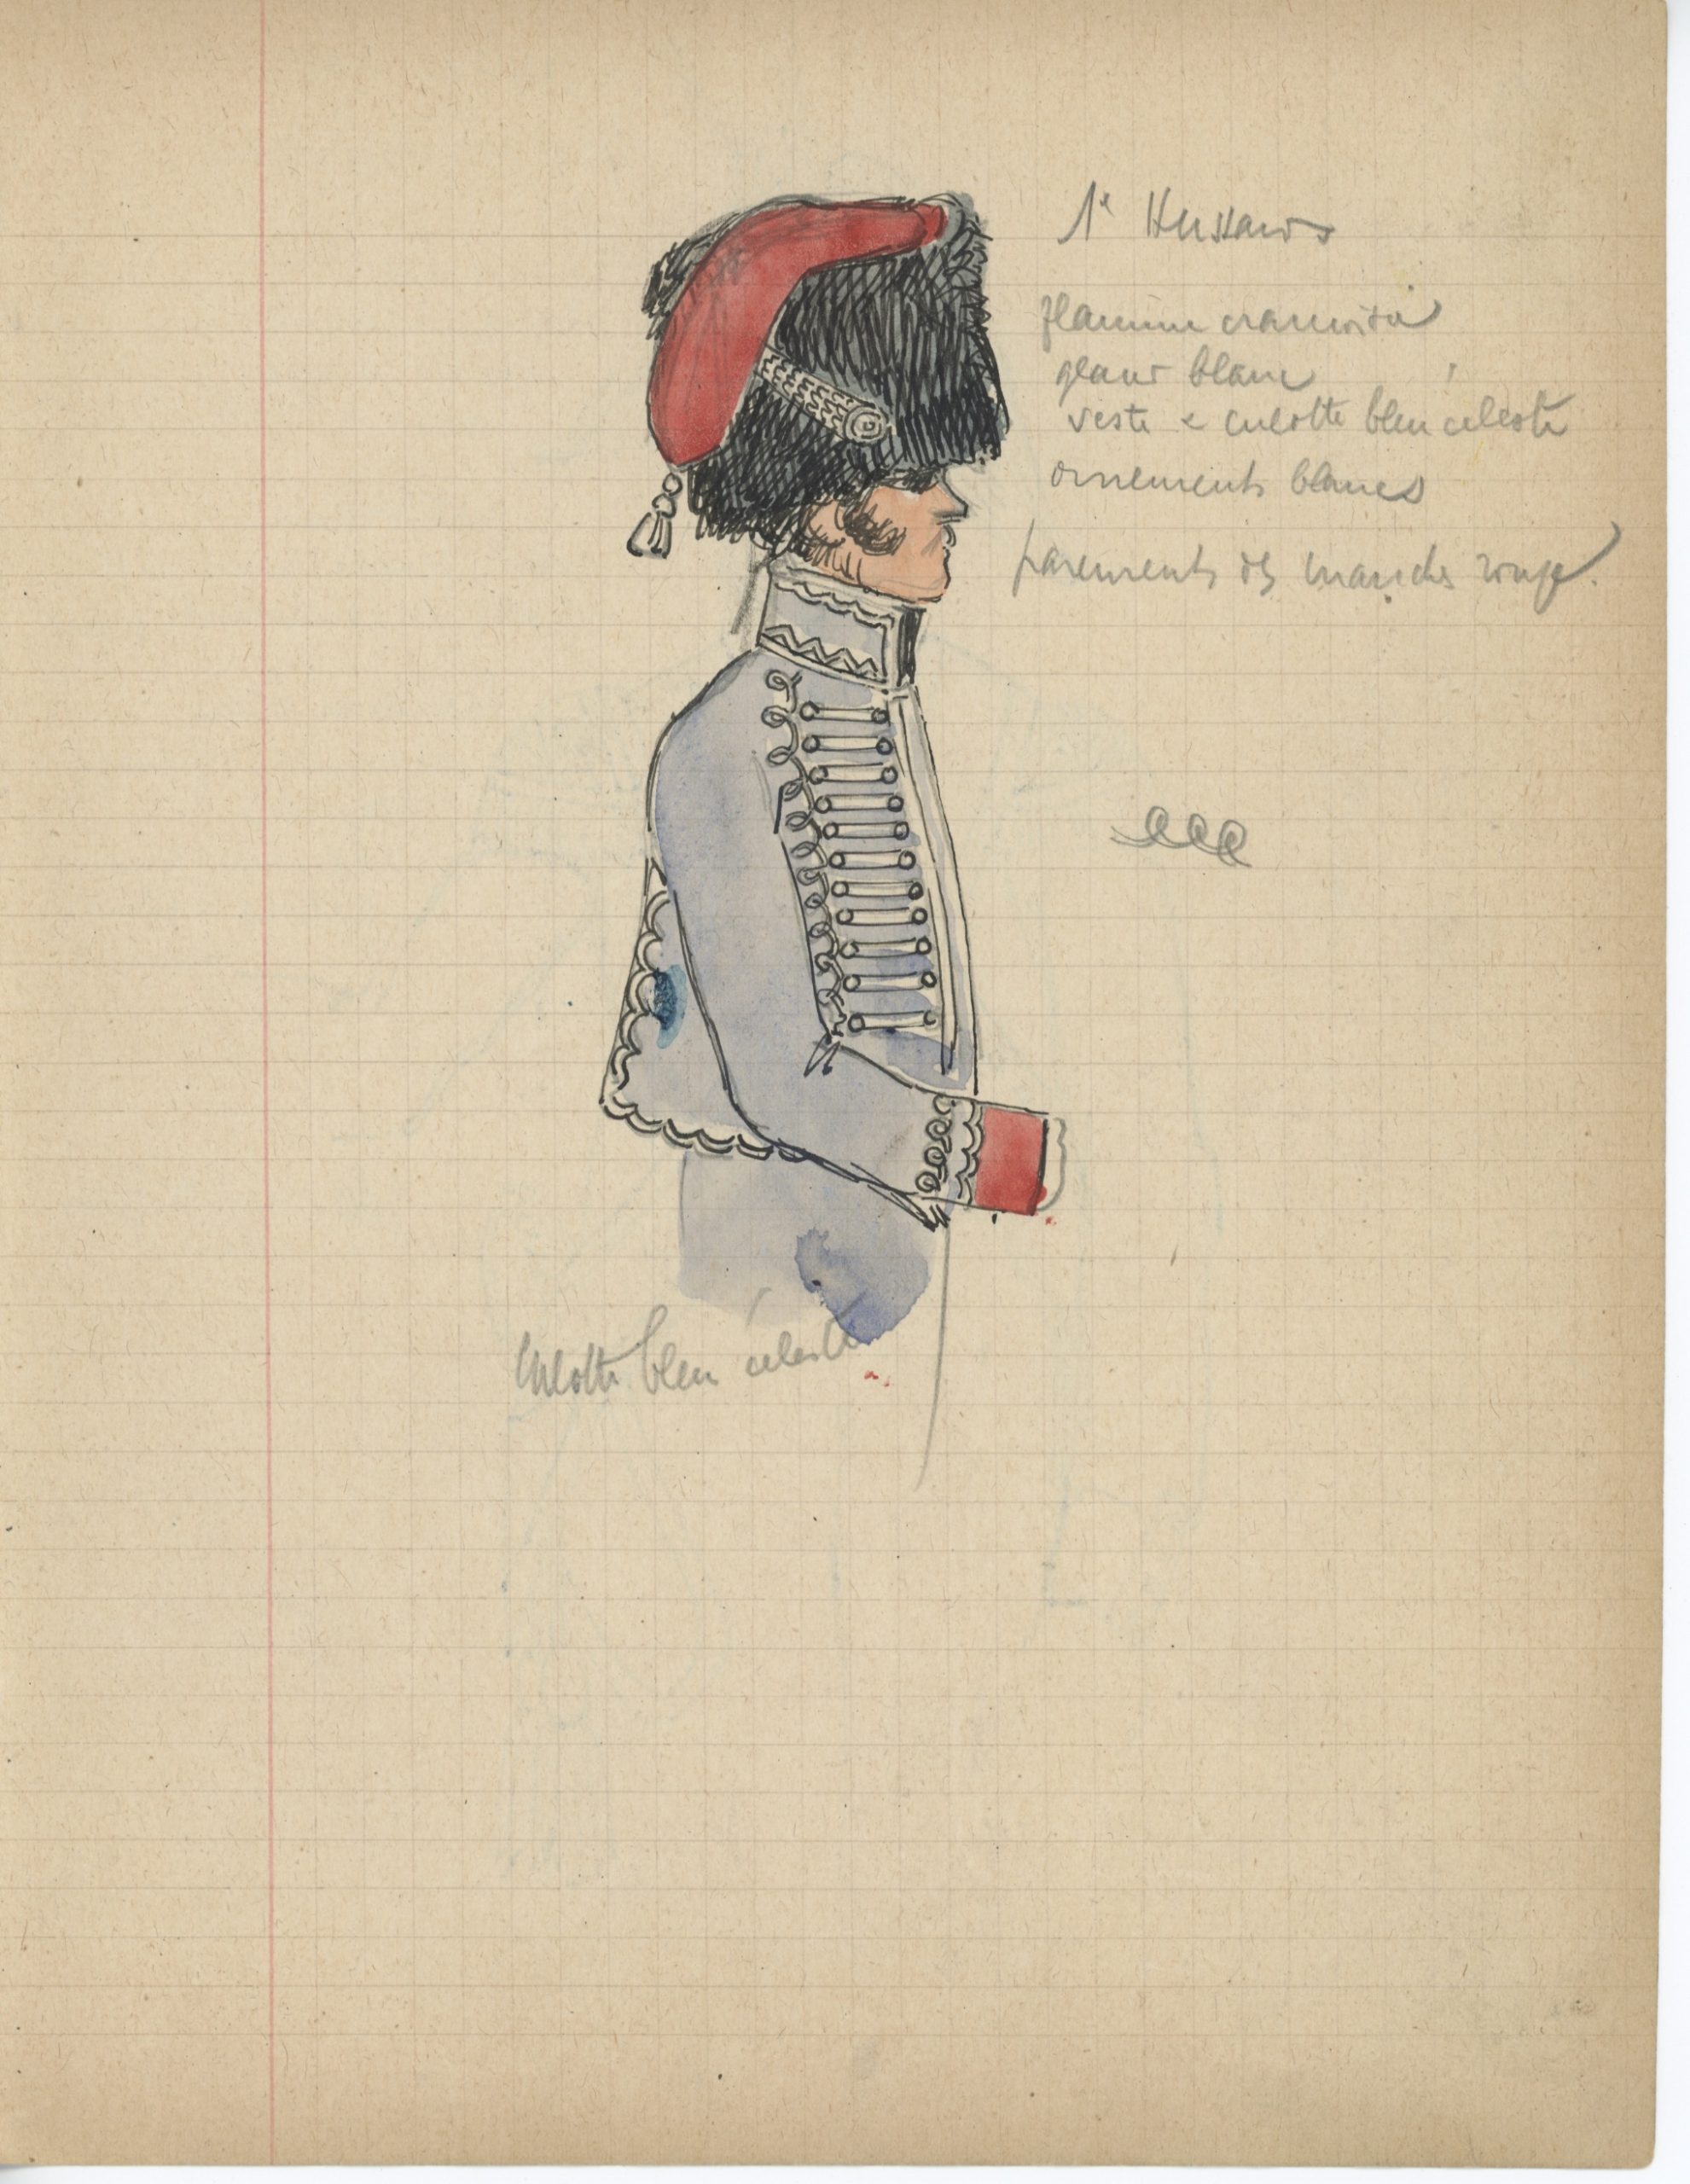 1e Hussards
flamme cramoisi
gland blanc
veste & culotte bleu céleste
ornements blancs
parements des manches rouge.
culotte bleu céleste